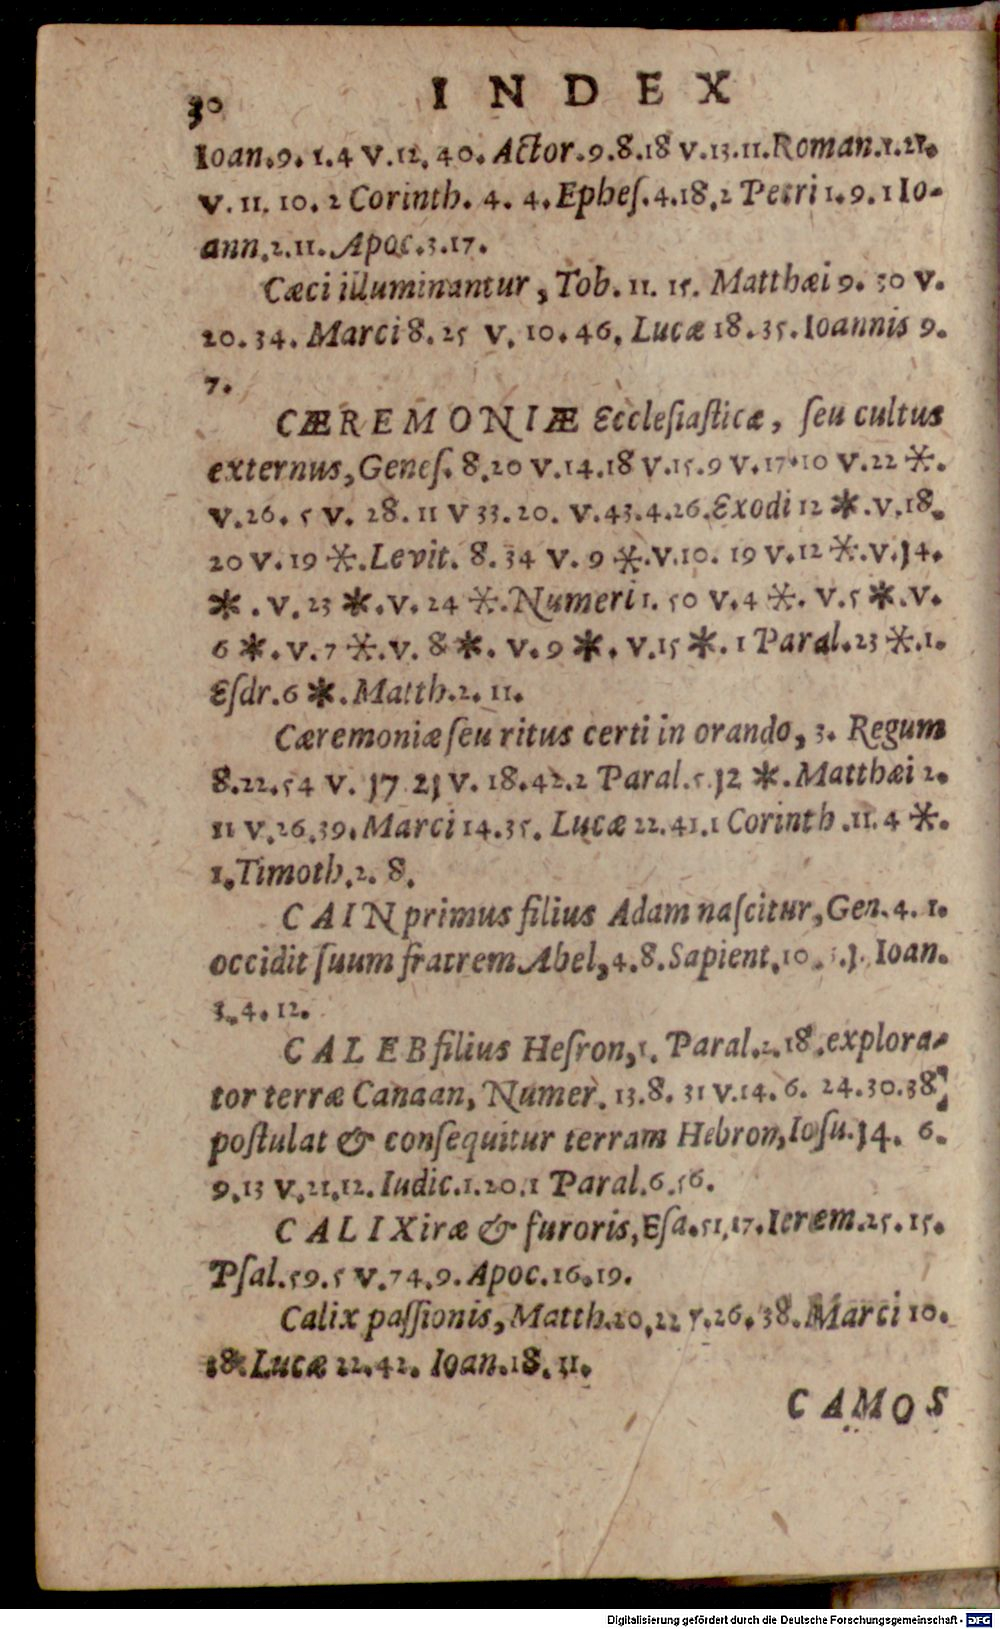 30 INDEX
Ioan.9. 1.4 V.12. 40. Actor.9.8.18 v.13.11.Roman.1.21.
V. 11. 10. 2 Corinth. 4. 4.Epheſ.4.18.2 Petri 1.9.1 Io-
ann.2.11. Apoc.3.17.
Cæci illuminantur, Tob. 11. 15. Matthæi 9. 30 V.
20. 34. Marci 8. 25 V. 10. 46. Lucæ 18. 35. Ioannis 9.
7.
CÆREMONIÆ Eccleſiaſticæ, ſeu cultus
externus, Geneſ. 8.20 V.14.18 V.15.9 V.17.10 V.22 *.
V.26. 5 V. 28. 11 V 33. 20. V.43.4.26.Exodi 12 *.V.18.
20 V. 19 *.Levit. 8. 34 V. 9 *.V.10. 19 V.12 *.V.14.
*. V. 23 *.V. 24 *.Numeri 1. 50 V.4 *. V.5 *.V.
6 *.V.7 *.V. 8 *. V.9 *. V.15 *. 1 Paral.23 *.1.
Eſdr.6 *.Matth.2. 11.
Cæremoniæ ſeu ritus certi in orando, 3. Regum
8.22.54 V. 17 21 V. 18.42.2 Paral.5.12 *.Matthæi 2.
11 V.26.39.Marci 14.35. Lucæ 22.41.1 Corinth.11.4 *.
1.Timoth.2. 8.
CAIN primus filius Adam naſcitur, Gen.4. 1.
occidit ſuum fratrem Abel, 4.8.Sapient.10. 3.1. Ioan.
3.4. 12.
CALEB filius Heſron, 1. Paral.2.18.explora-
tor terræ Canaan, Numer. 13.8. 31 V.14. 6. 24.30.38;
poſtulat & conſequitur terram Hebron, Ioſu.14. 6.
9.13 V.21.12. Iudic.1.20.1 Paral.6.56.
CALIX iræ & furoris, Eſa.51.17.Ierem.25.15.
Pſal.59.5 V.74.9. Apoc.16.19.
Calix paſſionis, Matth.20.22 V.26.38.Marci 10.
38.Lucæ 22.42. Ioan.18. 11.
CAMOS
Digitalisierung gefördert durch die Deutsche Forschungsgemeinschaft - DFG